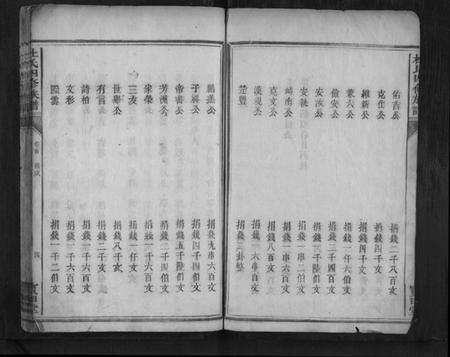 佑吉公 捐錢二千八百文
克仕公 捐錢四千文
維新公 捐錢四千文
東六公 捐錢一仟六伯文
儉安公 捐錢二千四百文
安汝公 捐錢一千陸伯文
安 公 捐錢一串二伯文
公 捐錢一串六百文
克文公 捐錢八百文
漢視公 捐錢一串六百文
楚豐 捐錢二卦整
公 捐錢九串六百文
子 公 捐錢四千四伯文
帝書公 捐錢五千陸伯文
芳洲公 捐錢二千四伯文
榮 捐錢一千六百文
三友 捐錢一仟文
世 公 捐錢八千文
有 捐錢二千文
詩柏 捐錢一千六百文
文彩 捐錢一千六百文
雲 捐錢一千二伯文
杜氏四修族譜
卷首
四
寶田堂